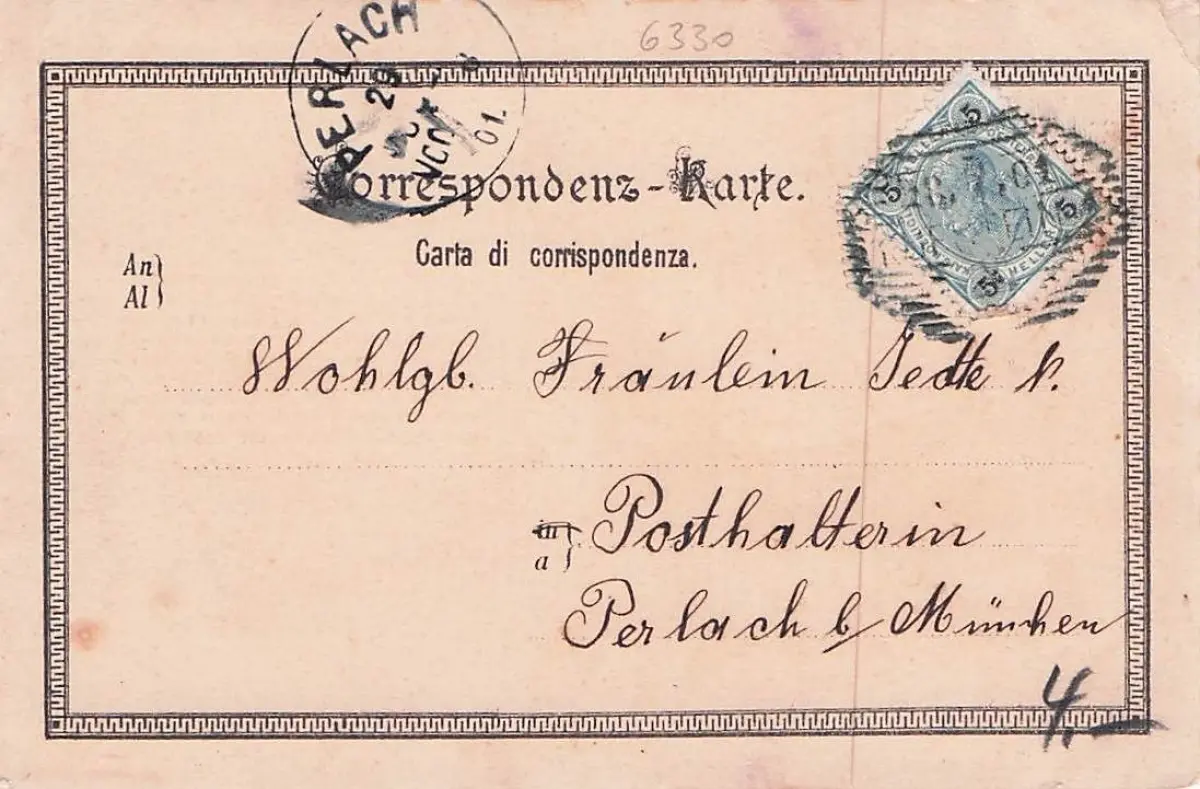 6330
PERLACH
29
VORM
01.
Correspondenz-Karte.
Carta di corrispondenza.
5 5 5 5
HELLER
An
Al
Wohlgb. Fräulein
in
a
Posthalterin
Perlach b/ München
4.-